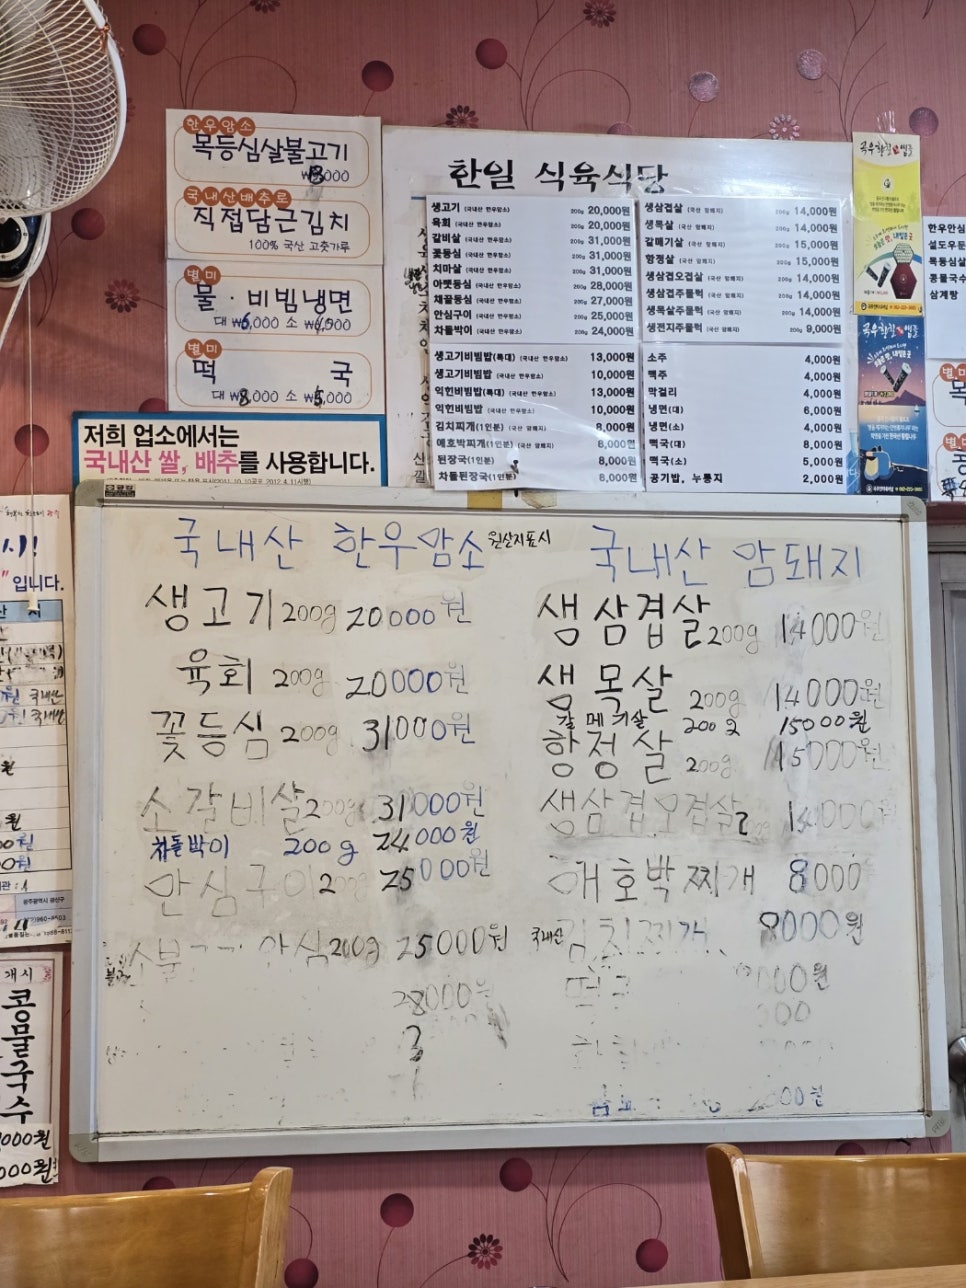 한우암소
목등심살불고기
국내산배추로
직접담근김치
100% 국산 고춧가루
별미
물 · 비빔냉면
대 ₩6,000 소
별미
떡 국
대 ₩8,000 소 ₩5,000
저희 업소에서는
국내산 쌀, 배추를 사용합니다.
한일 식육식당
생고기 (국내산 한우암소) 200g 20,000원
육회 (국내산 한우암소) 200g 20,000원
갈비살 (국내산 한우암소) 200g 31,000원
꽃등심 (국내산 한우암소) 200g 31,000원
치마살 (국내산 한우암소) 200g 31,000원
아랫등심 (국내산 한우암소) 200g 28,000원
채끝등심 (국내산 한우암소) 200g 27,000원
안심구이 (국내산 한우암소) 200g 25,000원
차돌박이 (국내산 한우암소) 200g 24,000원
생고기비빔밥(특대) (국내산 한우암소) 13,000원
생고기비빔밥 (국내산 한우암소) 10,000원
익힌비빔밥(특대) (국내산 한우암소) 13,000원
익힌비빔밥 (국내산 한우암소) 10,000원
김치찌개(1인분) (국산 암퇘지) 8,000원
애호박찌개(1인분) (국산 암퇘지) 8,000원
된장국(1인분) 8,000원
차돌된장국(1인분) 8,000원
생삼겹살 (국산 암퇘지) 200g 14,000원
생목살 (국산 암퇘지) 200g 14,000원
갈매기살 (국산 암퇘지) 200g 15,000원
항정살 (국산 암퇘지) 200g 15,000원
생삼겹오겹살 (국산 암퇘지) 200g 14,000원
생삼겹주물럭 (국산 암퇘지) 200g 14,000원
생목살주물럭 (국산 암퇘지) 200g 14,000원
생전지주물럭 (국산 암퇘지) 200g 9,000원
소주 4,000원
맥주 4,000원
막걸리 4,000원
냉면(대) 6,000원
냉면(소) 4,000원
떡국(대) 8,000원
떡국(소) 5,000원
공기밥, 누룽지 2,000원
한우안심
설도우둔
목등심살
콩물국수
삼계탕
별미
입니다.
개시
콩물국수
국내산 한우암소 원산지표시
생고기 200g 20000원
육회 200g 20000원
꽃등심 200g 31000원
소갈비살 200g 31000원
차돌박이 200g 24000원
안심구이 200g 25000원
200g 25000원
28000원
국내산 암돼지
생삼겹살 200g 14000원
생목살 200g 14000원
갈메기살 200g 15000원
항정살 200g 15000원
생삼겹오겹살 14000원
애호박찌개 8000
국내산 김치찌개 8000원
떡국